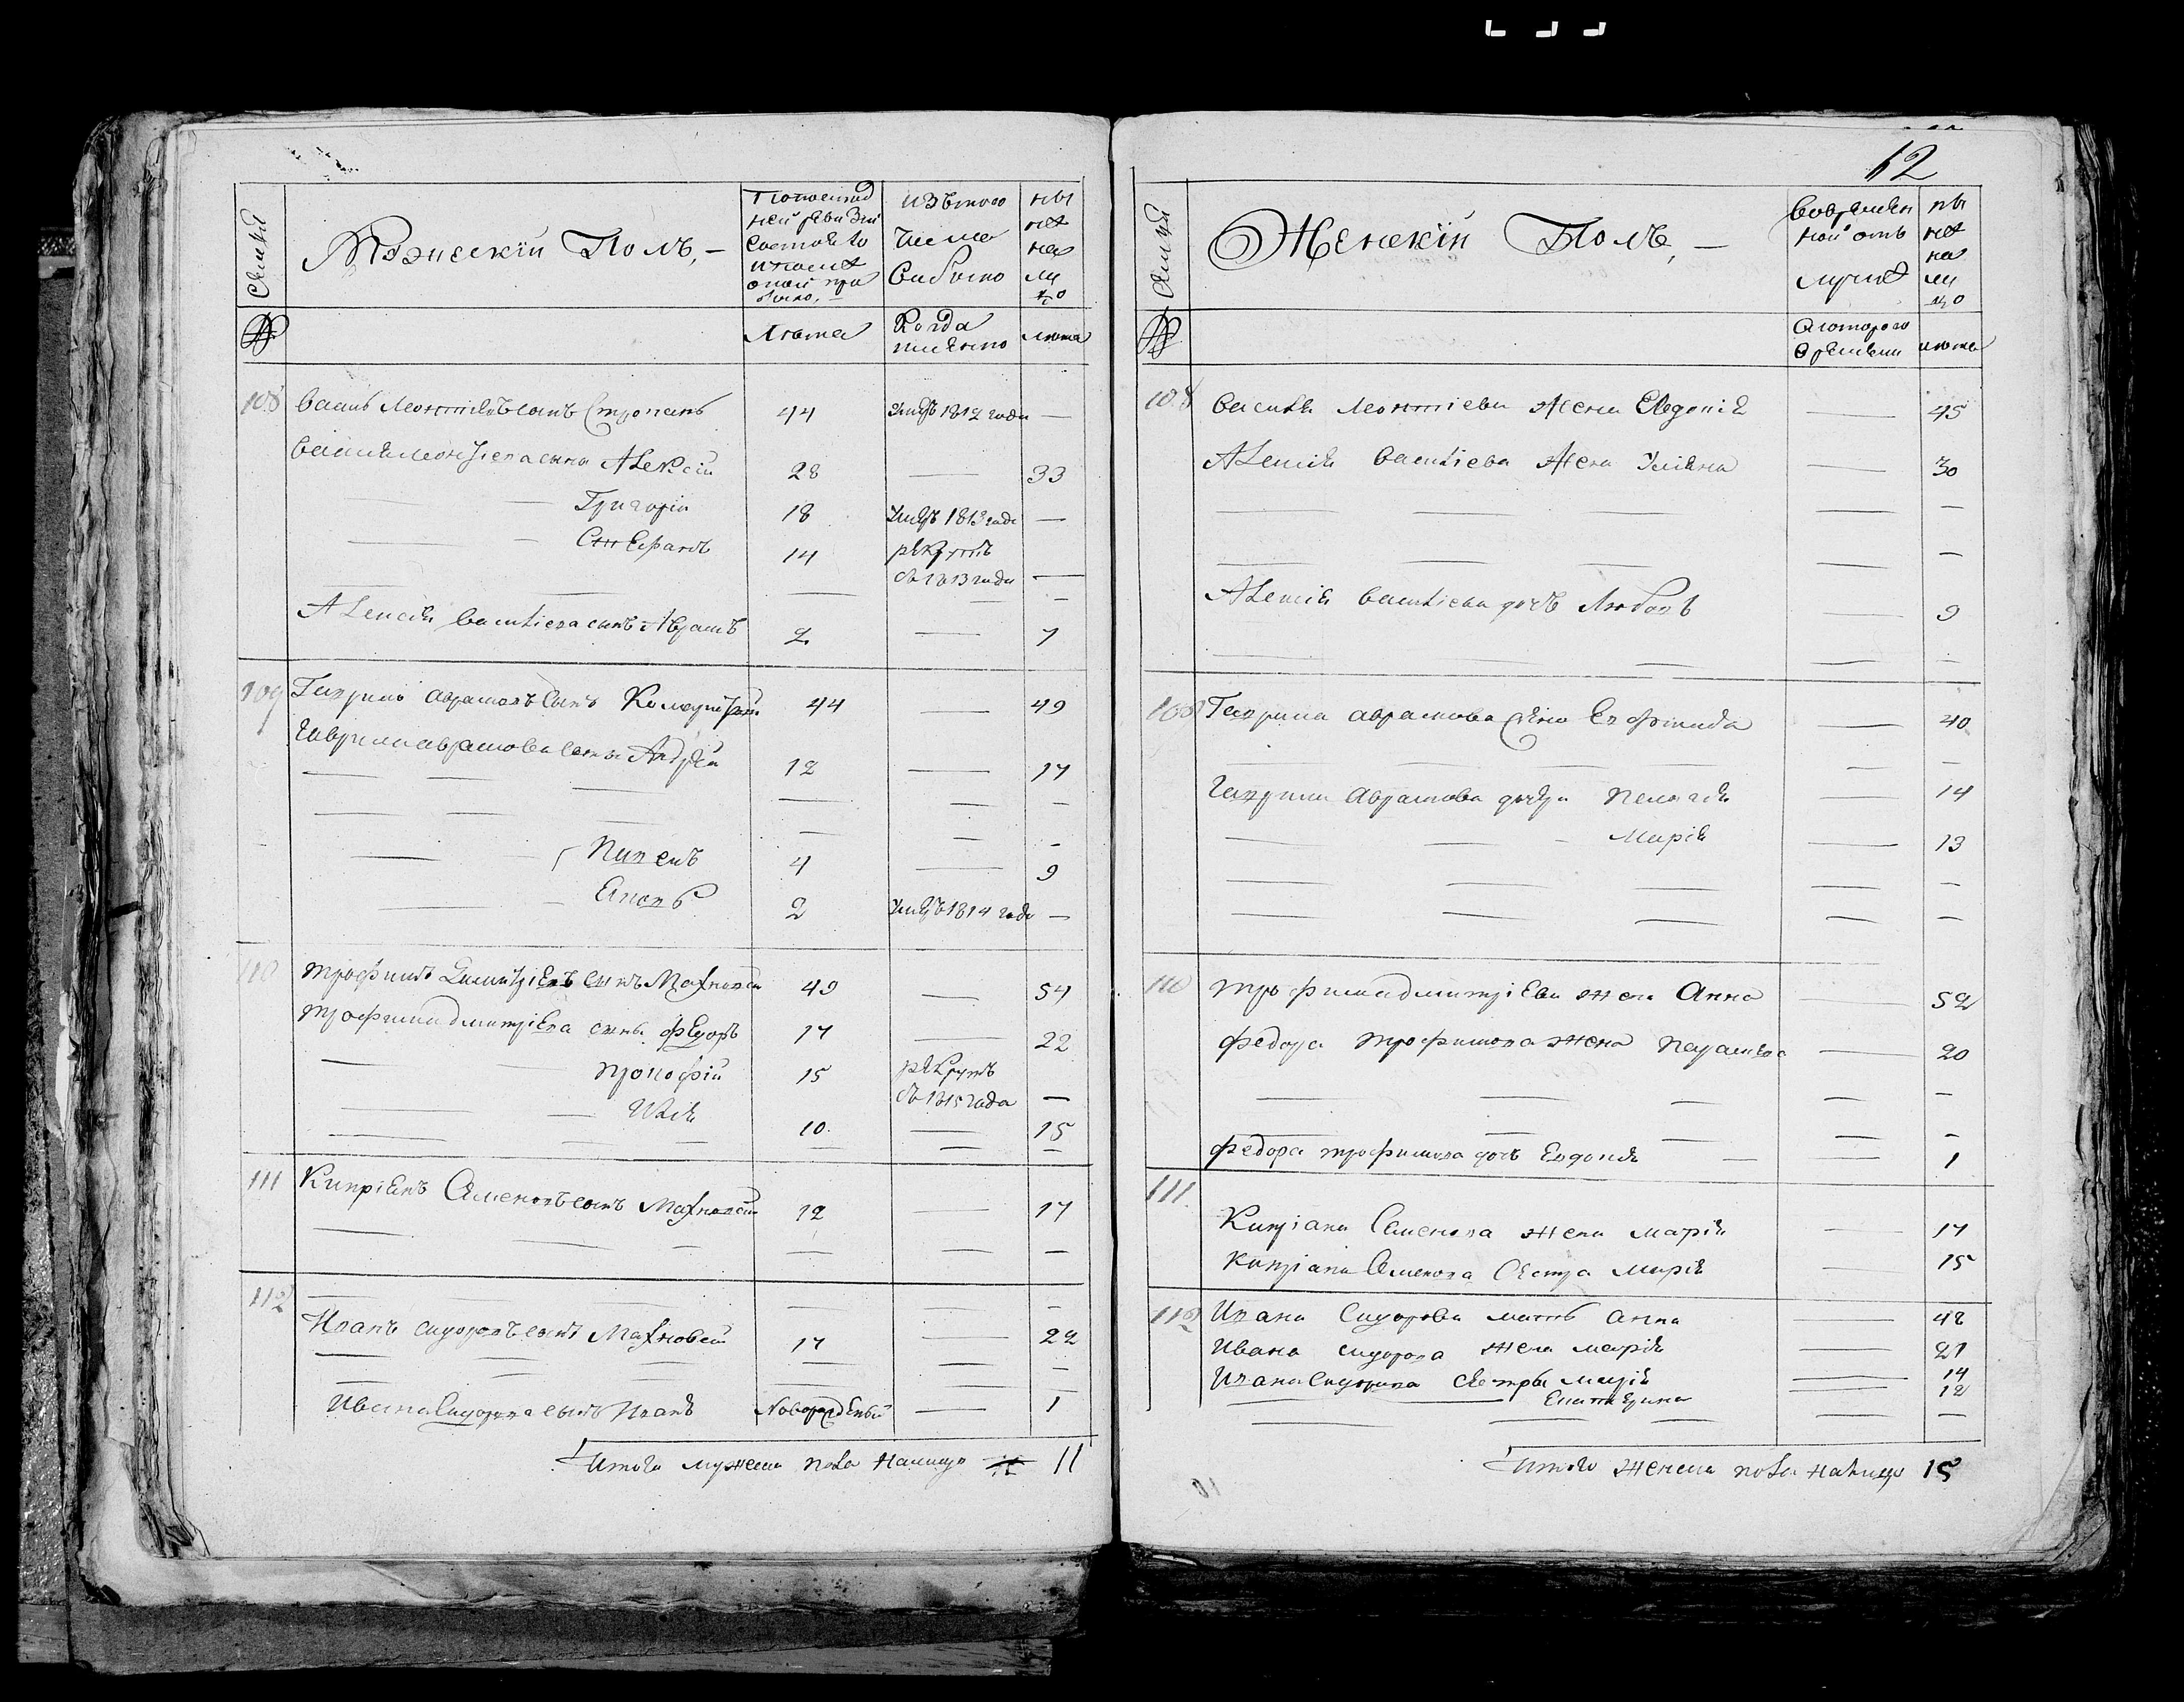 62
Семьи
Мужескій Полъ,
По последней ревизіи состояло и после оной прибыло,
Изъ того числа выбыло
ныне на лицо
№
Лета
Когда именно
лета
108 Василь Леонтіевъ сынъ 44 умръ 1812 года —
Василя Леонтіева сыны Алексій 28 — 33
Григорій 18 умръ 1813 года —
Стефанъ 14 рекрутъ
съ 1813 года —
Алексія Васильева сынъ Аврамъ 2 — 7
109 Гаврило Аврамовъ сынъ 44 — 49
Гаврила Аврамова сыны Андрей 12 — 17
Пименъ 4 — 9
2 умръ 1814 года —
110 Трофимъ Димитріевъ сынъ Махновскій 49 — 54
Трофима Дмитріева сыны Федоръ 17 — 22
Прокофій 15 рекрутъ
съ 1815 года —
Илія 10 — 15
111 Кипріянъ Семеновъ сынъ Махновскій 12 — 17
112
Иванъ Сидоровъ сынъ Махновскій 17 — 22
Ивана Сидорова сынъ Иванъ Новорожденый — 1
Итого мужеска пола налицо 11
Семьи
Женскій Полъ,
Во временной отлучке
ныне на лицо
№
С котораго времени
лета
108 Василя Леонтіева жена Евдокія — 45
Алексія Василіева жена Уліяна — 30
Алексія Василіева дочь Любовь — 9
109 Гаврила Аврамова жена — 40
Гаврила Аврамова дочери Пелагія 14
Марія — 13
110 Трофима Дмитріева жена Анна — 52
Федора Трофимова жена Параскева — 20
Федора Трофимова дочь Евдокія — 1
111
Кипріана Семенова жена Марія — 17
Кипріана Семенова сестра Марія — 15
112 Ивана Сидорова мать Анна — 48
Ивана Сидорова жена Марія — 21
Ивана Сидорова сестры Марія — 14
Екатерина — 12
Итого женска пола налицо 15